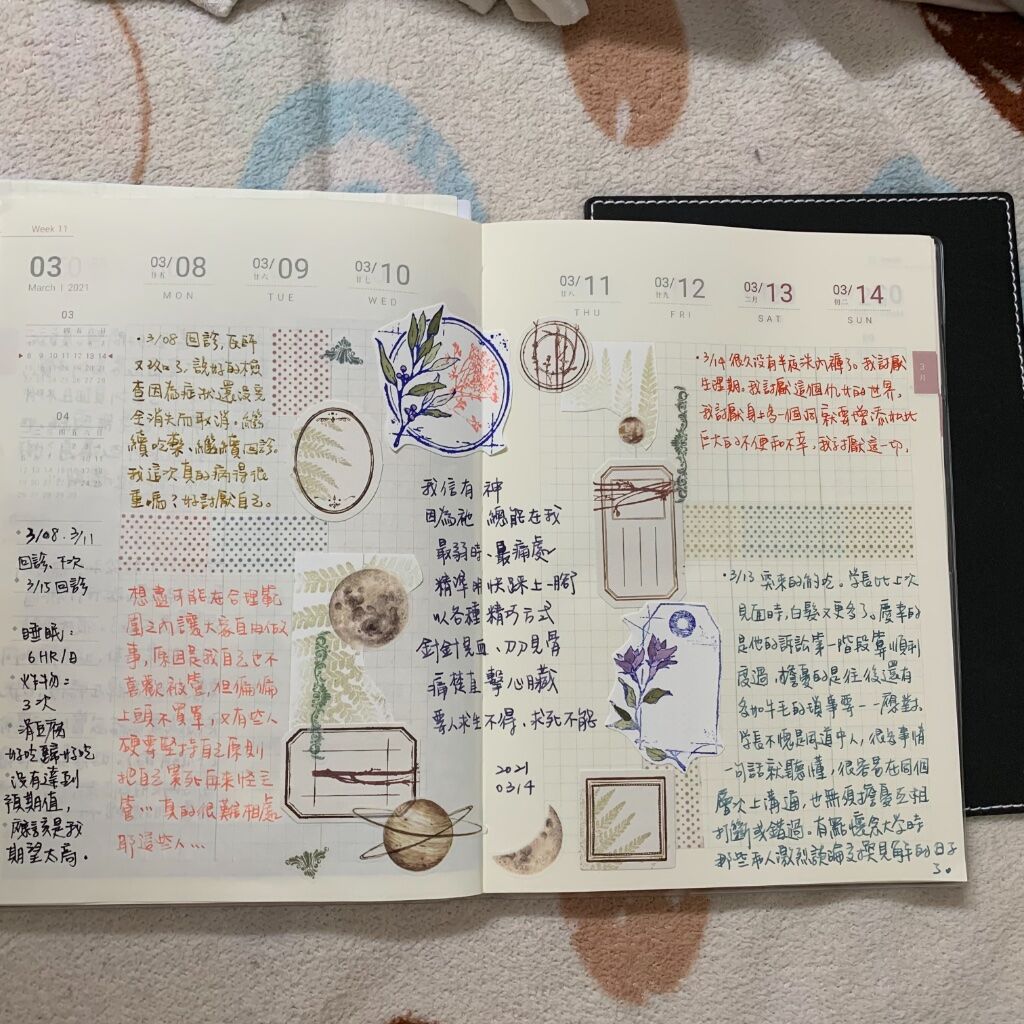 Week 11
03
March | 2021
03/08
廿五
MON
03/09
廿六
TUE
03/10
廿七
WED
03
8 9 10 11 12 13 14
04
・3/08 回診,醫師
又改口了,說好的檢
查因為症狀還沒完
全消失而取消。繼
續吃藥、繼續回診。
我這次真的病得很
重嗎?好討厭自己。
3/08.3/11
回診、下次
3/15回診
睡眠:
6HR/日
炸物:
3次
消豆腐
好吃歸好吃
沒有達到
預期值,
應該是我
期望太高。
想盡可能在合理範
圍之內讓大家自由做
事,原因是我自己也不
喜歡被管,但偏偏
上頭不買單,又有些人
硬要堅持自己原則
把自己累死再來怪主
管…真的很難相處
耶這些人…
我信有神
因為祂總能在我
最弱時、最痛處
精準用快踩上一腳
以各種精巧方式
針針見血、刀刀見骨
痛徒直擊心臟
要人求生不得、求死不能
2021
0314
03/11
廿八
THU
03/12
廿九
FRI
03/13
二月
SAT
03/14
初二
SUN
3月
・3/14 很久沒有半夜洗內褲了。我討厭
生理期。我討厭這個仇女的世界。
我討厭身上多一個洞就要增添如此
巨大的不便和不幸,我討厭這一切。
・3/13 突來的約吃。學長比上次
見面時,白髮又更多了。慶幸的
是他的訴訟第一階段算順利
度過,擔憂的是往後還有
多如牛毛的瑣事要一一應對。
學長不愧是同道中人,很多事情
一句話就聽懂,很容易在同個
層次上溝通,也無須擔憂互相
打斷或錯過。有點懷念大學時
那些兩人激烈談論交換見解的日子
了。